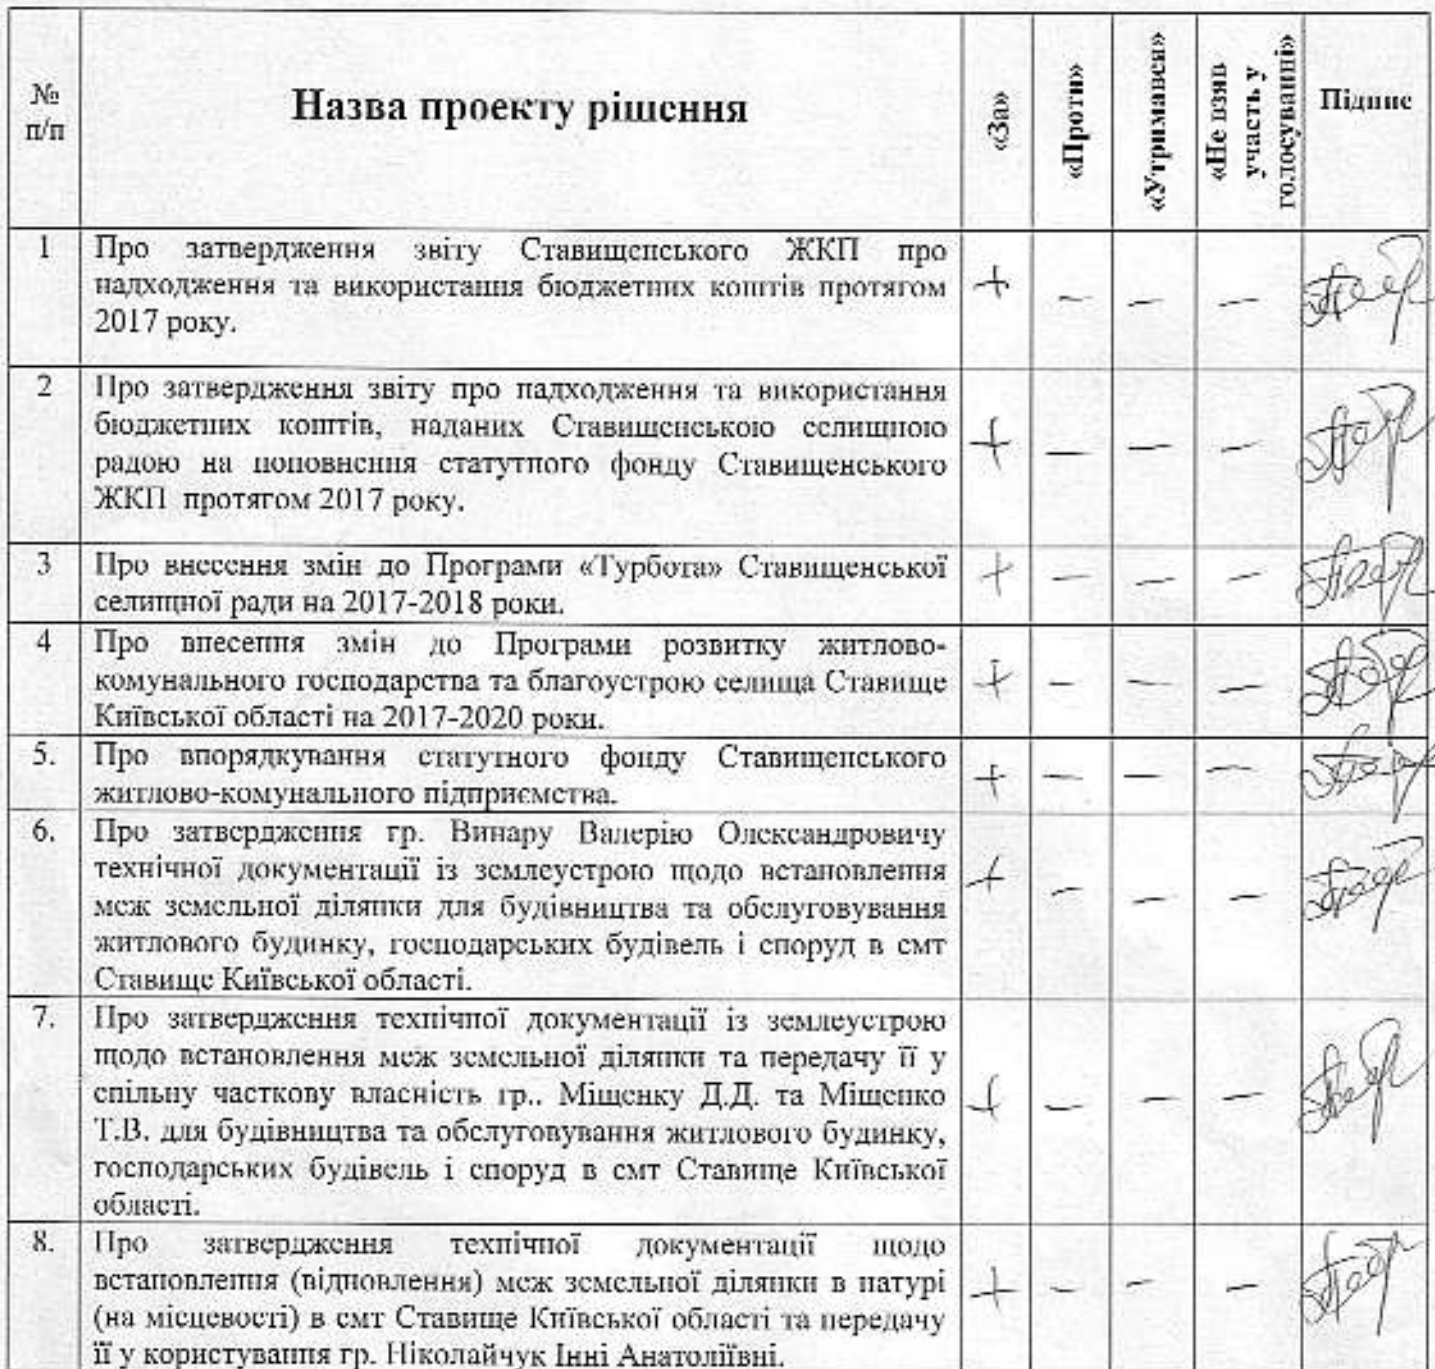 № п/п
Назва проекту рішення
«За»
«Проти»
«Утримався»
«Не взяв участь у голосуванні»
Підпис
1
Про затвердження звіту Ставищенського ЖКП про
надходження та використання бюджетних коштів протягом
2017 року.
+ – – –
2
Про затвердження звіту про надходження та використання
бюджетних коштів, наданих Ставищенською селищною
радою на поповнення статутного фонду Ставищенського
ЖКП протягом 2017 року.
+ – – –
3
Про внесення змін до Програми «Турбота» Ставищенської
селищної ради на 2017-2018 роки.
+ – – –
4
Про внесення змін до Програми розвитку житлово-
комунального господарства та благоустрою селища Ставище
Київської області на 2017-2020 роки.
+ – – –
5.
Про впорядкування статутного фонду Ставищенського
житлово-комунального підприємства.
+ – – –
6.
Про затвердження гр. Винару Валерію Олександровичу
технічної документації із землеустрою щодо встановлення
меж земельної ділянки для будівництва та обслуговування
житлового будинку, господарських будівель і споруд в смт
Ставище Київської області.
+ – – –
7.
Про затвердження технічної документації із землеустрою
щодо встановлення меж земельної ділянки та передачу її у
спільну часткову власність гр.. Міщенку Д.Д. та Міщенко
Т.В. для будівництва та обслуговування житлового будинку,
господарських будівель і споруд в смт Ставище Київської
області.
+ – – –
8.
Про затвердження технічної документації щодо
встановлення (відновлення) меж земельної ділянки в натурі
(на місцевості) в смт Ставище Київської області та передачу
її у користування гр. Ніколайчук Інні Анатоліївні.
+ – – –